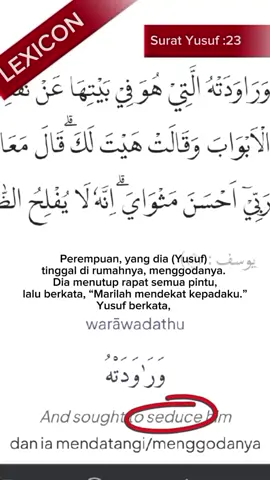 LEXICON
Surat Yusuf :23
وَرَاوَدَتْهُ الَّتِيْ هُوَ فِيْ بَيْتِهَا عَنْ
الْاَبْوَابَ وَقَالَتْ هَيْتَ لَكَ ۗ قَالَ
رَبِّيْٓ اَحْسَنَ مَثْوَايَ ۗ اِنَّهٗ لَا يُفْلِحُ
Perempuan, yang dia (Yusuf)
يوسف
tinggal di rumahnya, menggodanya.
Dia menutup rapat semua pintu,
lalu berkata, “Marilah mendekat kepadaku.”
Yusuf berkata,
warāwadathu
وَرَٰوَدَتْهُ
And sought to seduce him
dan ia mendatangi/menggodanya